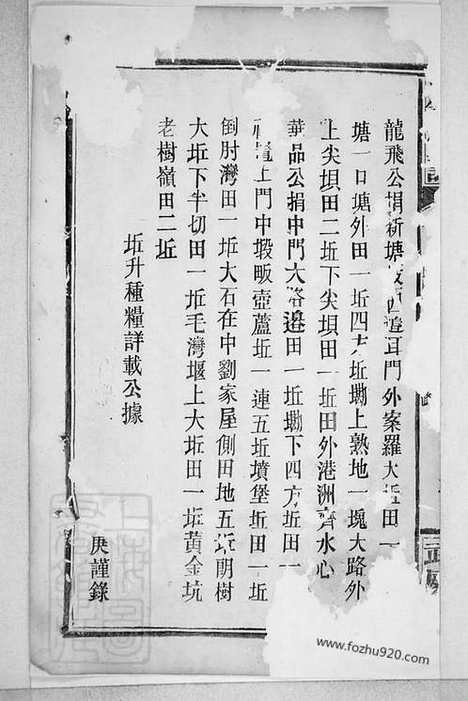 龍飛公捐新塘 四邉耳門外案羅大坵田一
塘一口塘外田一坵四方坵墈上熟地一塊大路外
上尖垻田二坵下尖垻田一坵田外港洲齊水心
華品公捐中門大路邉田一坵墈下四方坵田一
上門中塅畈壺蘆坵一連五坵墳堡坵田一坵
倒肘灣田一坵大石在中劉家屋側田地五坵朙樹
大坵下半切田一坵毛灣堰上大坵田一坵黃金坑
老樹嶺田二坵
坵升種糧詳載公據
庚謹錄
www.fozhu920.com